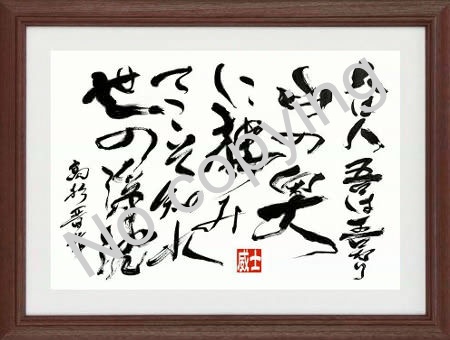 人は人 吾は吾なり
山の奥
に棲み
てこそ知れ
世の浮沈
高杉晋作
威士
No copying